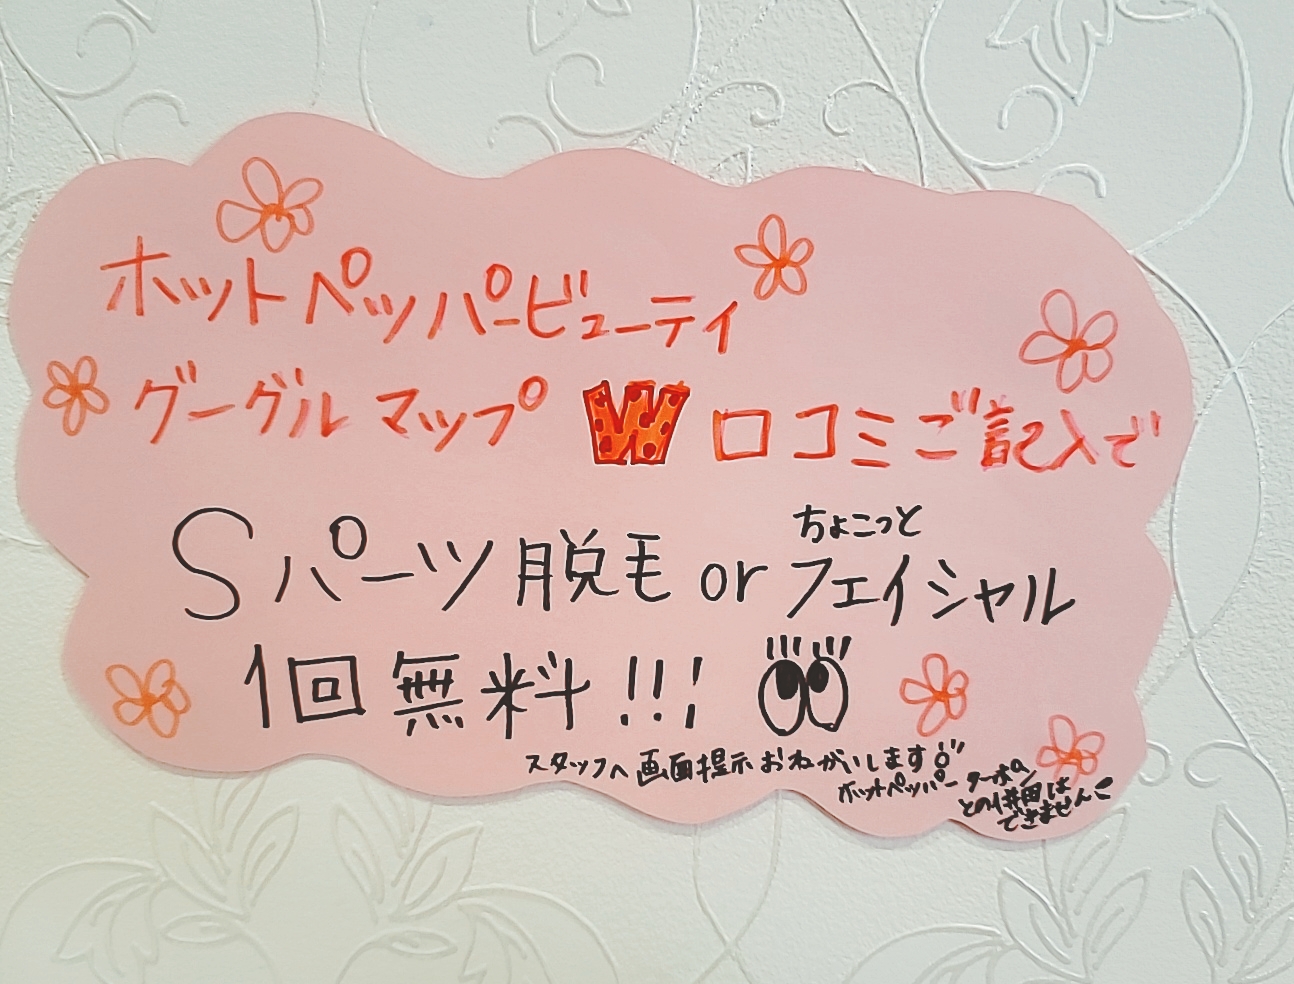 ホットペッパービューティ
グーグルマップ W 口コミご記入で
ちょこっと
Sパーツ脱毛 or フェイシャル
1回無料!!!
スタッフへ画面提示おねがいします
ホットペッパー クーポン
との併用は
できません